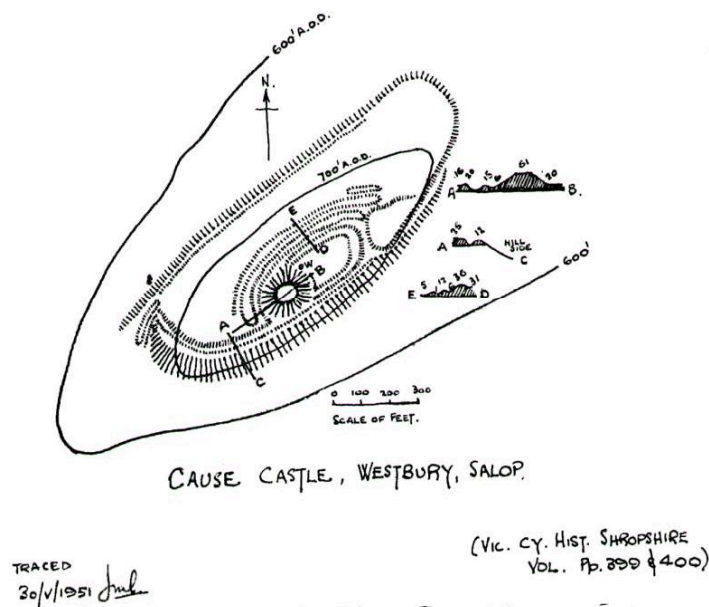 600' A.O.D.
N.
700' A.O.D.
E
D
W
B
A
C
16 20 15 6 61 20
A B.
25 12
A HILL SIDE C
5 12 6 36 31
E D
600'
0 100 200 300
SCALE OF FEET.
CAUSE CASTLE, WESTBURY, SALOP.
(VIC. CY. HIST. SHROPSHIRE
VOL. Pp. 399 & 400)
TRACED
30/V/1951